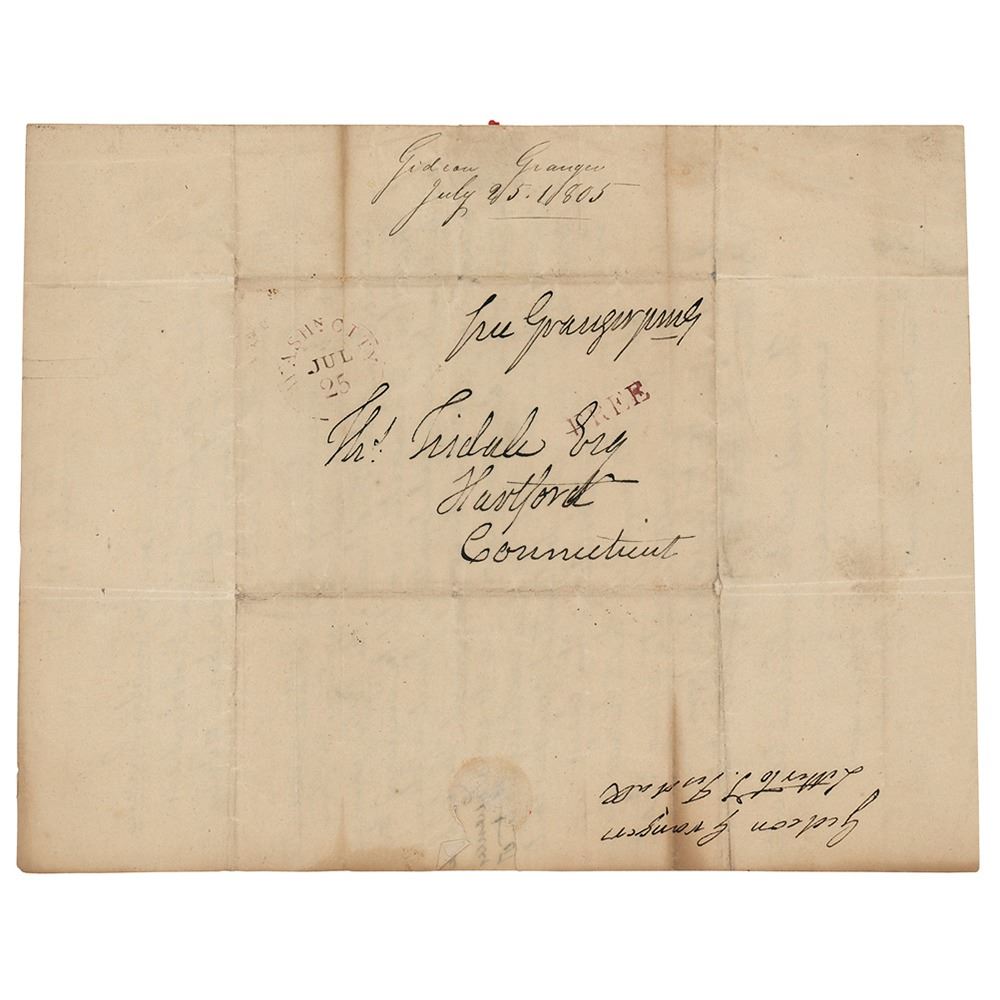 Gideon Granger
July 25. 1805
free Granger pmG
WASHN. CITY
JUL
25
FREE
Ths. Tisdale Esq
Hartford
Connecticut
Gideon Granger
Letter to T. Tisdall